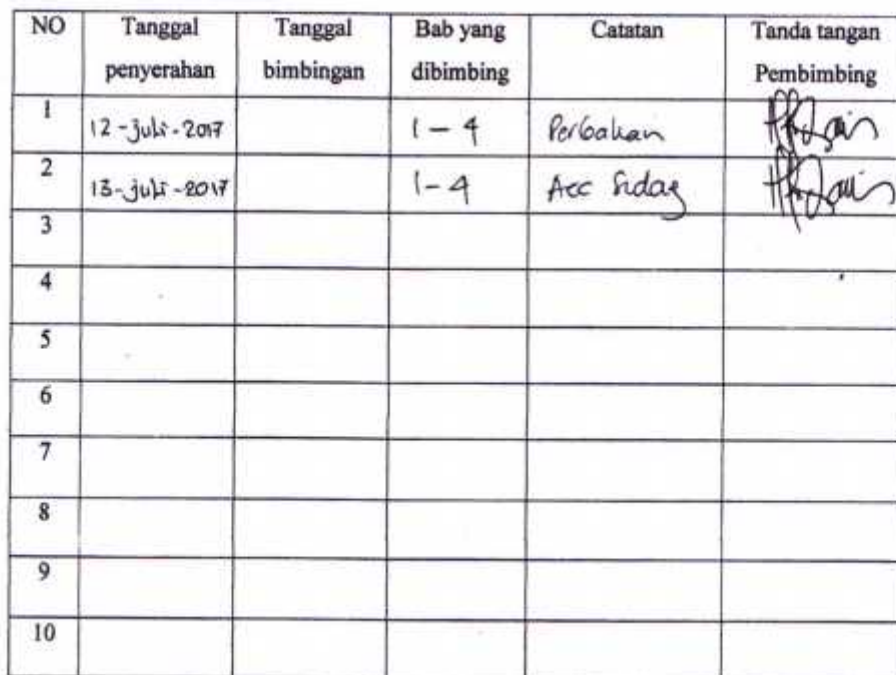 NO Tanggal penyerahan Tanggal bimbingan Bab yang dibimbing Catatan Tanda tangan Pembimbing
1 12-juli-2017 1-4 Perbaikan
2 13-juli-2017 1-4 Acc Sidang
3
4
5
6
7
8
9
10